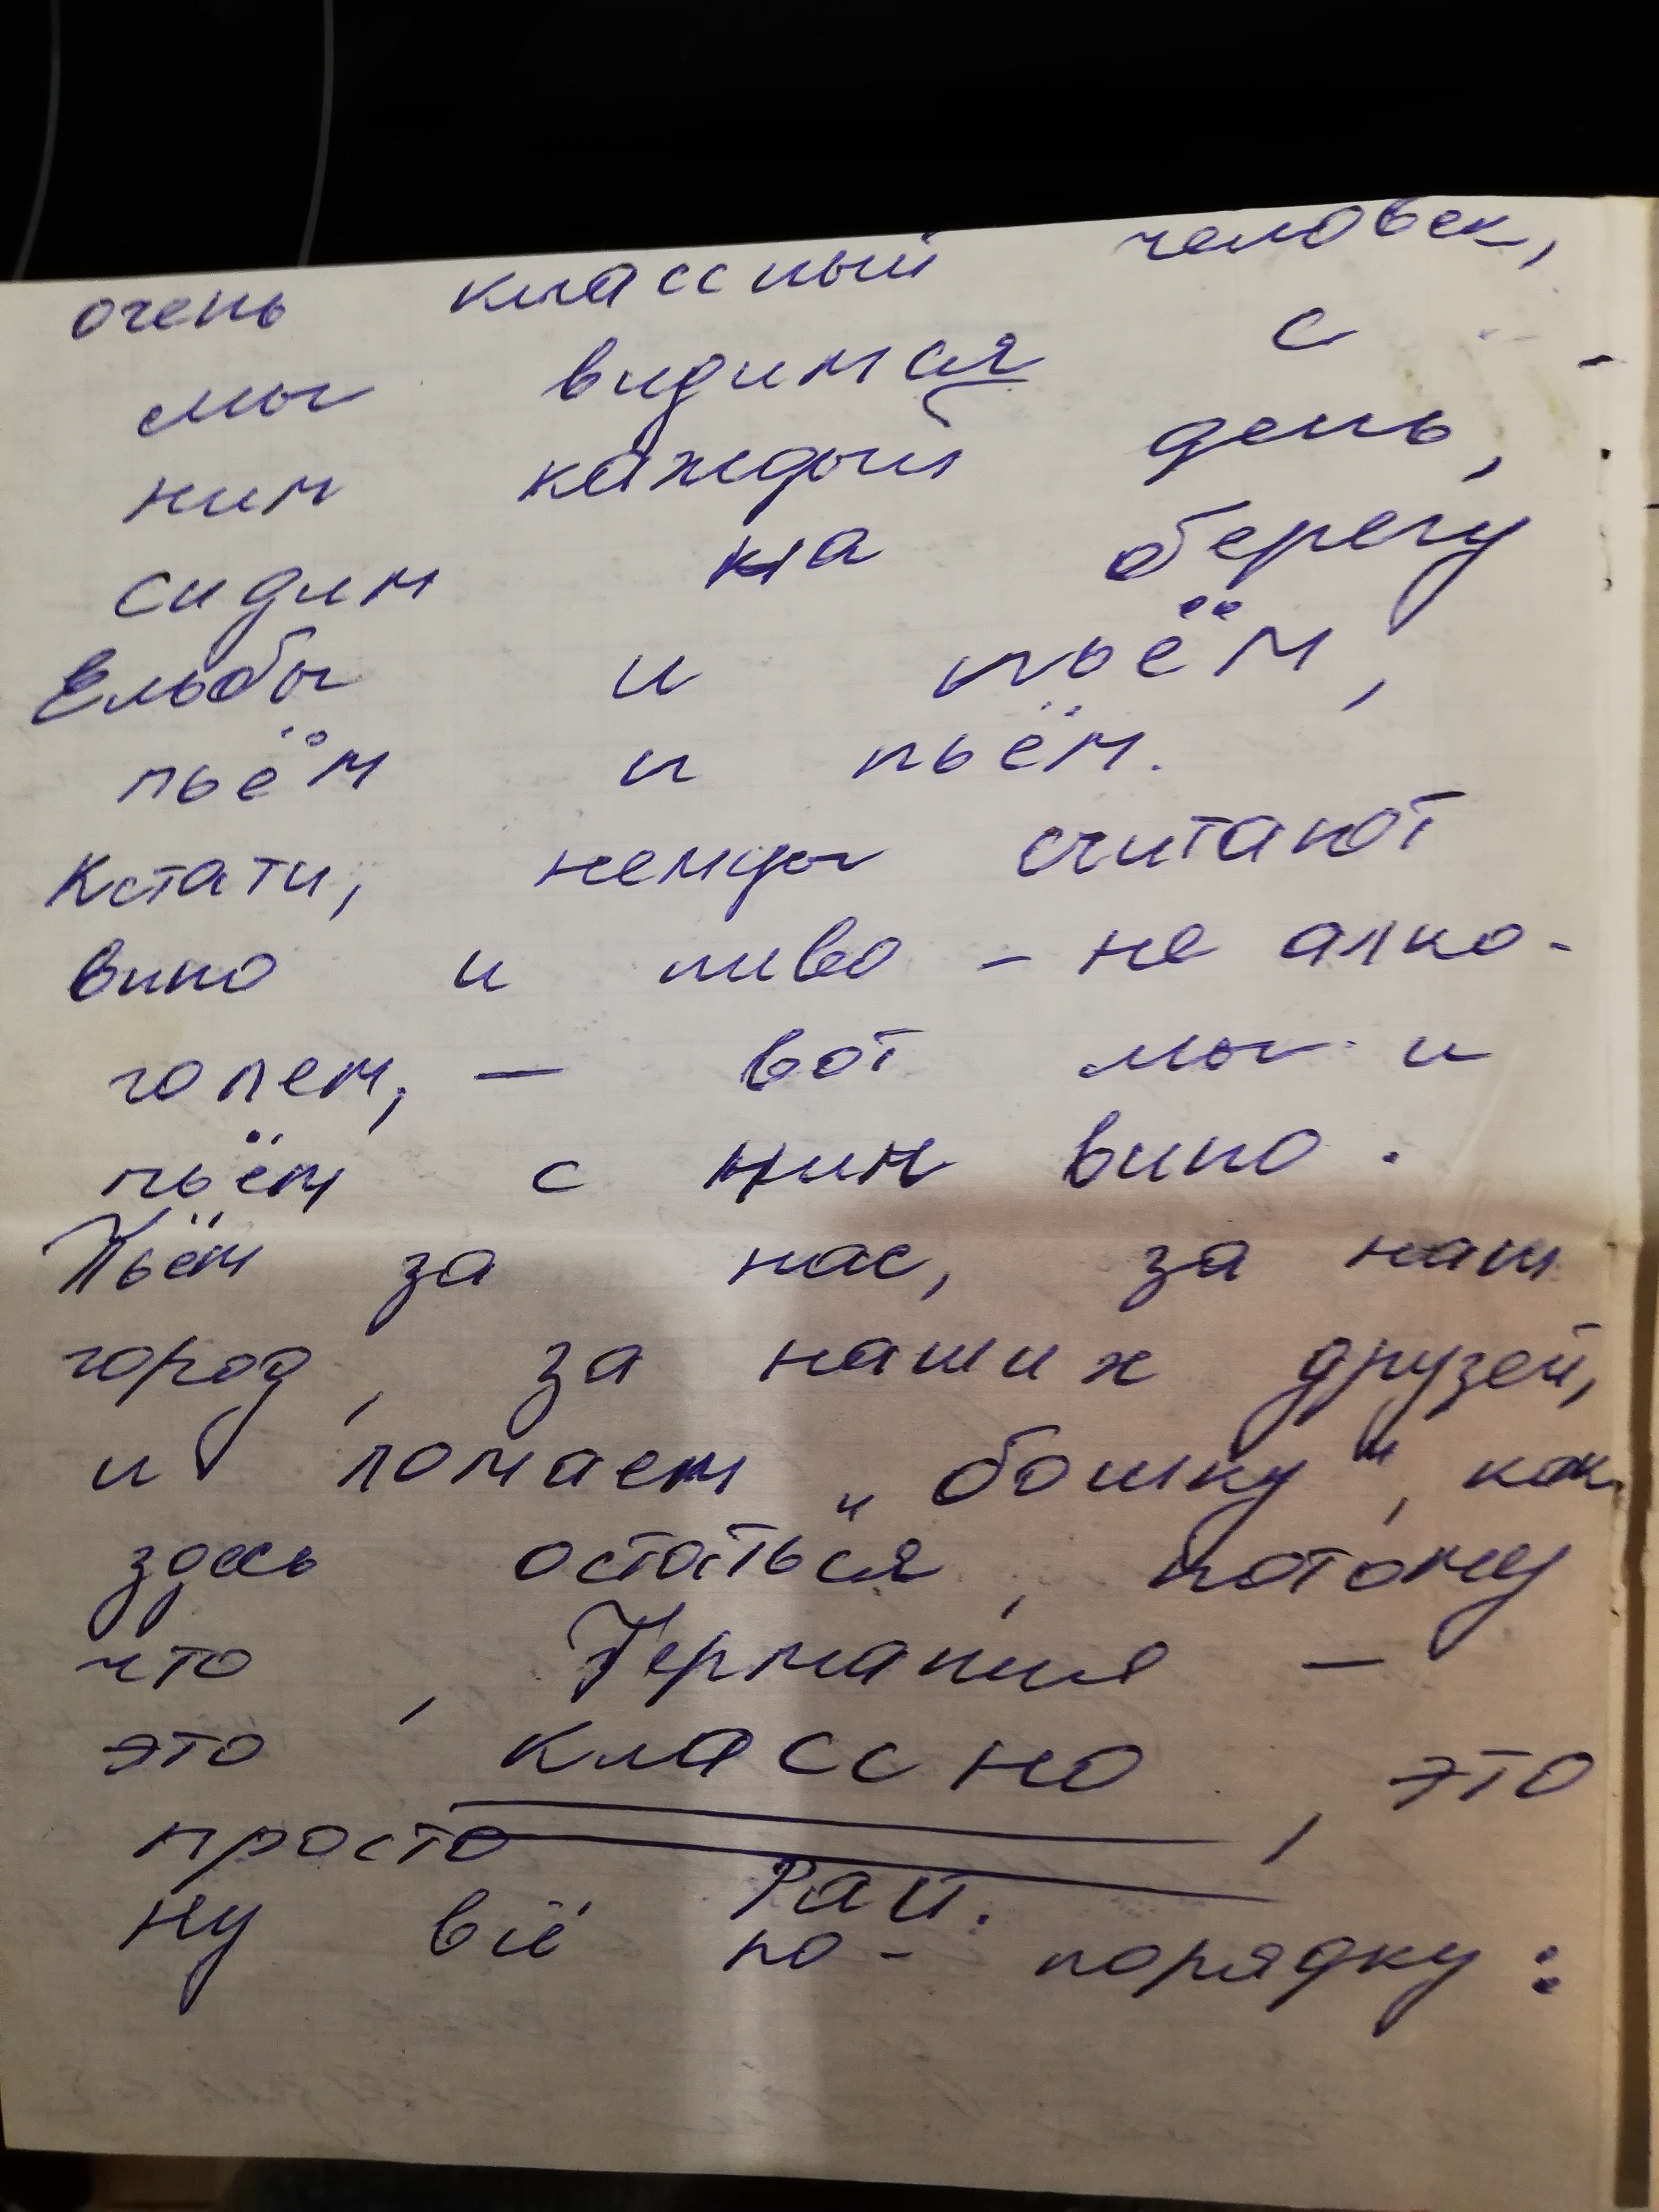 очень классный человек,
мы видимся с
ним каждый день,
сидим на берегу
Ельбы и пьём,
пьём и пьём.
Кстати, немцы считают
вино и пиво - не алко-
голем, - вот мы и
пьём с ним вино.
Пьём за нас, за наш
город, за наших друзей,
и ломаем „бошку", как
здесь остаться, потому
что, Германия -
это классно, это
просто рай.
Ну всё по-порядку: